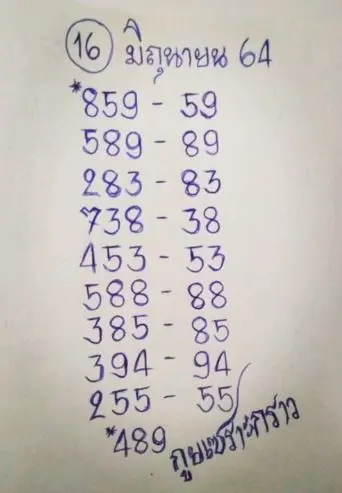 16 มิถุนายน 64
*859 - 59
589 - 89
283 - 83
738 - 38
453 - 53
588 - 88
385 - 85
394 - 94
255 - 55
*489